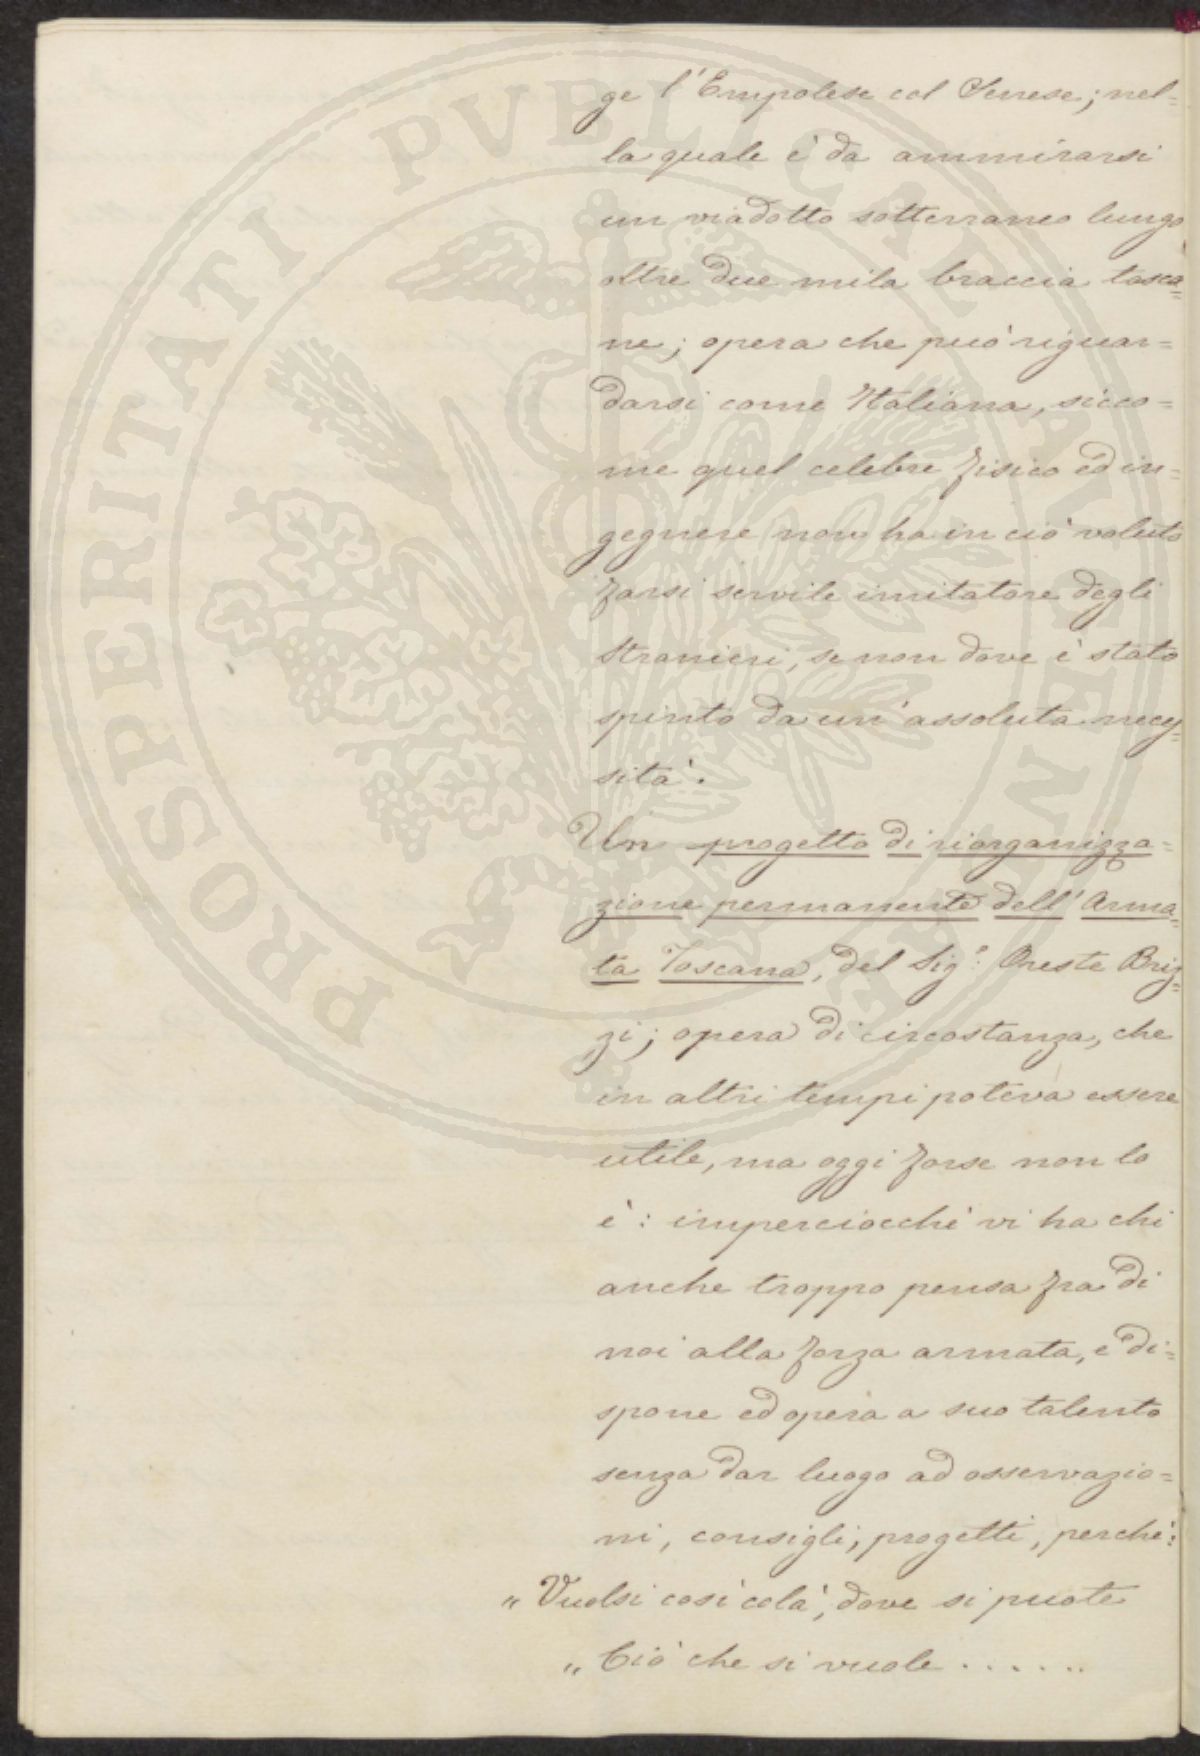 ge l'Empolese col Senese; nel=
la quale è da ammirarsi
un viadotto sotterraneo lungo
oltre due mila braccia tosca=
ne; opera che può riguar=
darsi come Italiana, sicco=
me quel celebre fisico ed in=
gegnere non ha in ciò voluto
farsi servile imitatore degli
stranieri, se non dove è stato
spinto da un'assoluta neces=
sità.
Un progetto di riorganizza=
zione permanente dell'Arma=
ta Toscana, del Sig.º: Oreste Briz=
zi; opera di circostanza, che
in altri tempi poteva essere
utile, ma oggi forse non lo
è: imperciocchè vi ha chi
anche troppo pensa fra di
noi alla forza armata, e di=
spone ed opera a suo talento
senza dar luogo ad osservazio=
ni, consigli, progetti, perchè:
„ Vuolsi così colà, dove si puote
„ Ciò che si vuole ......
PROSPERITATI PVBLICAE AVGENDAE